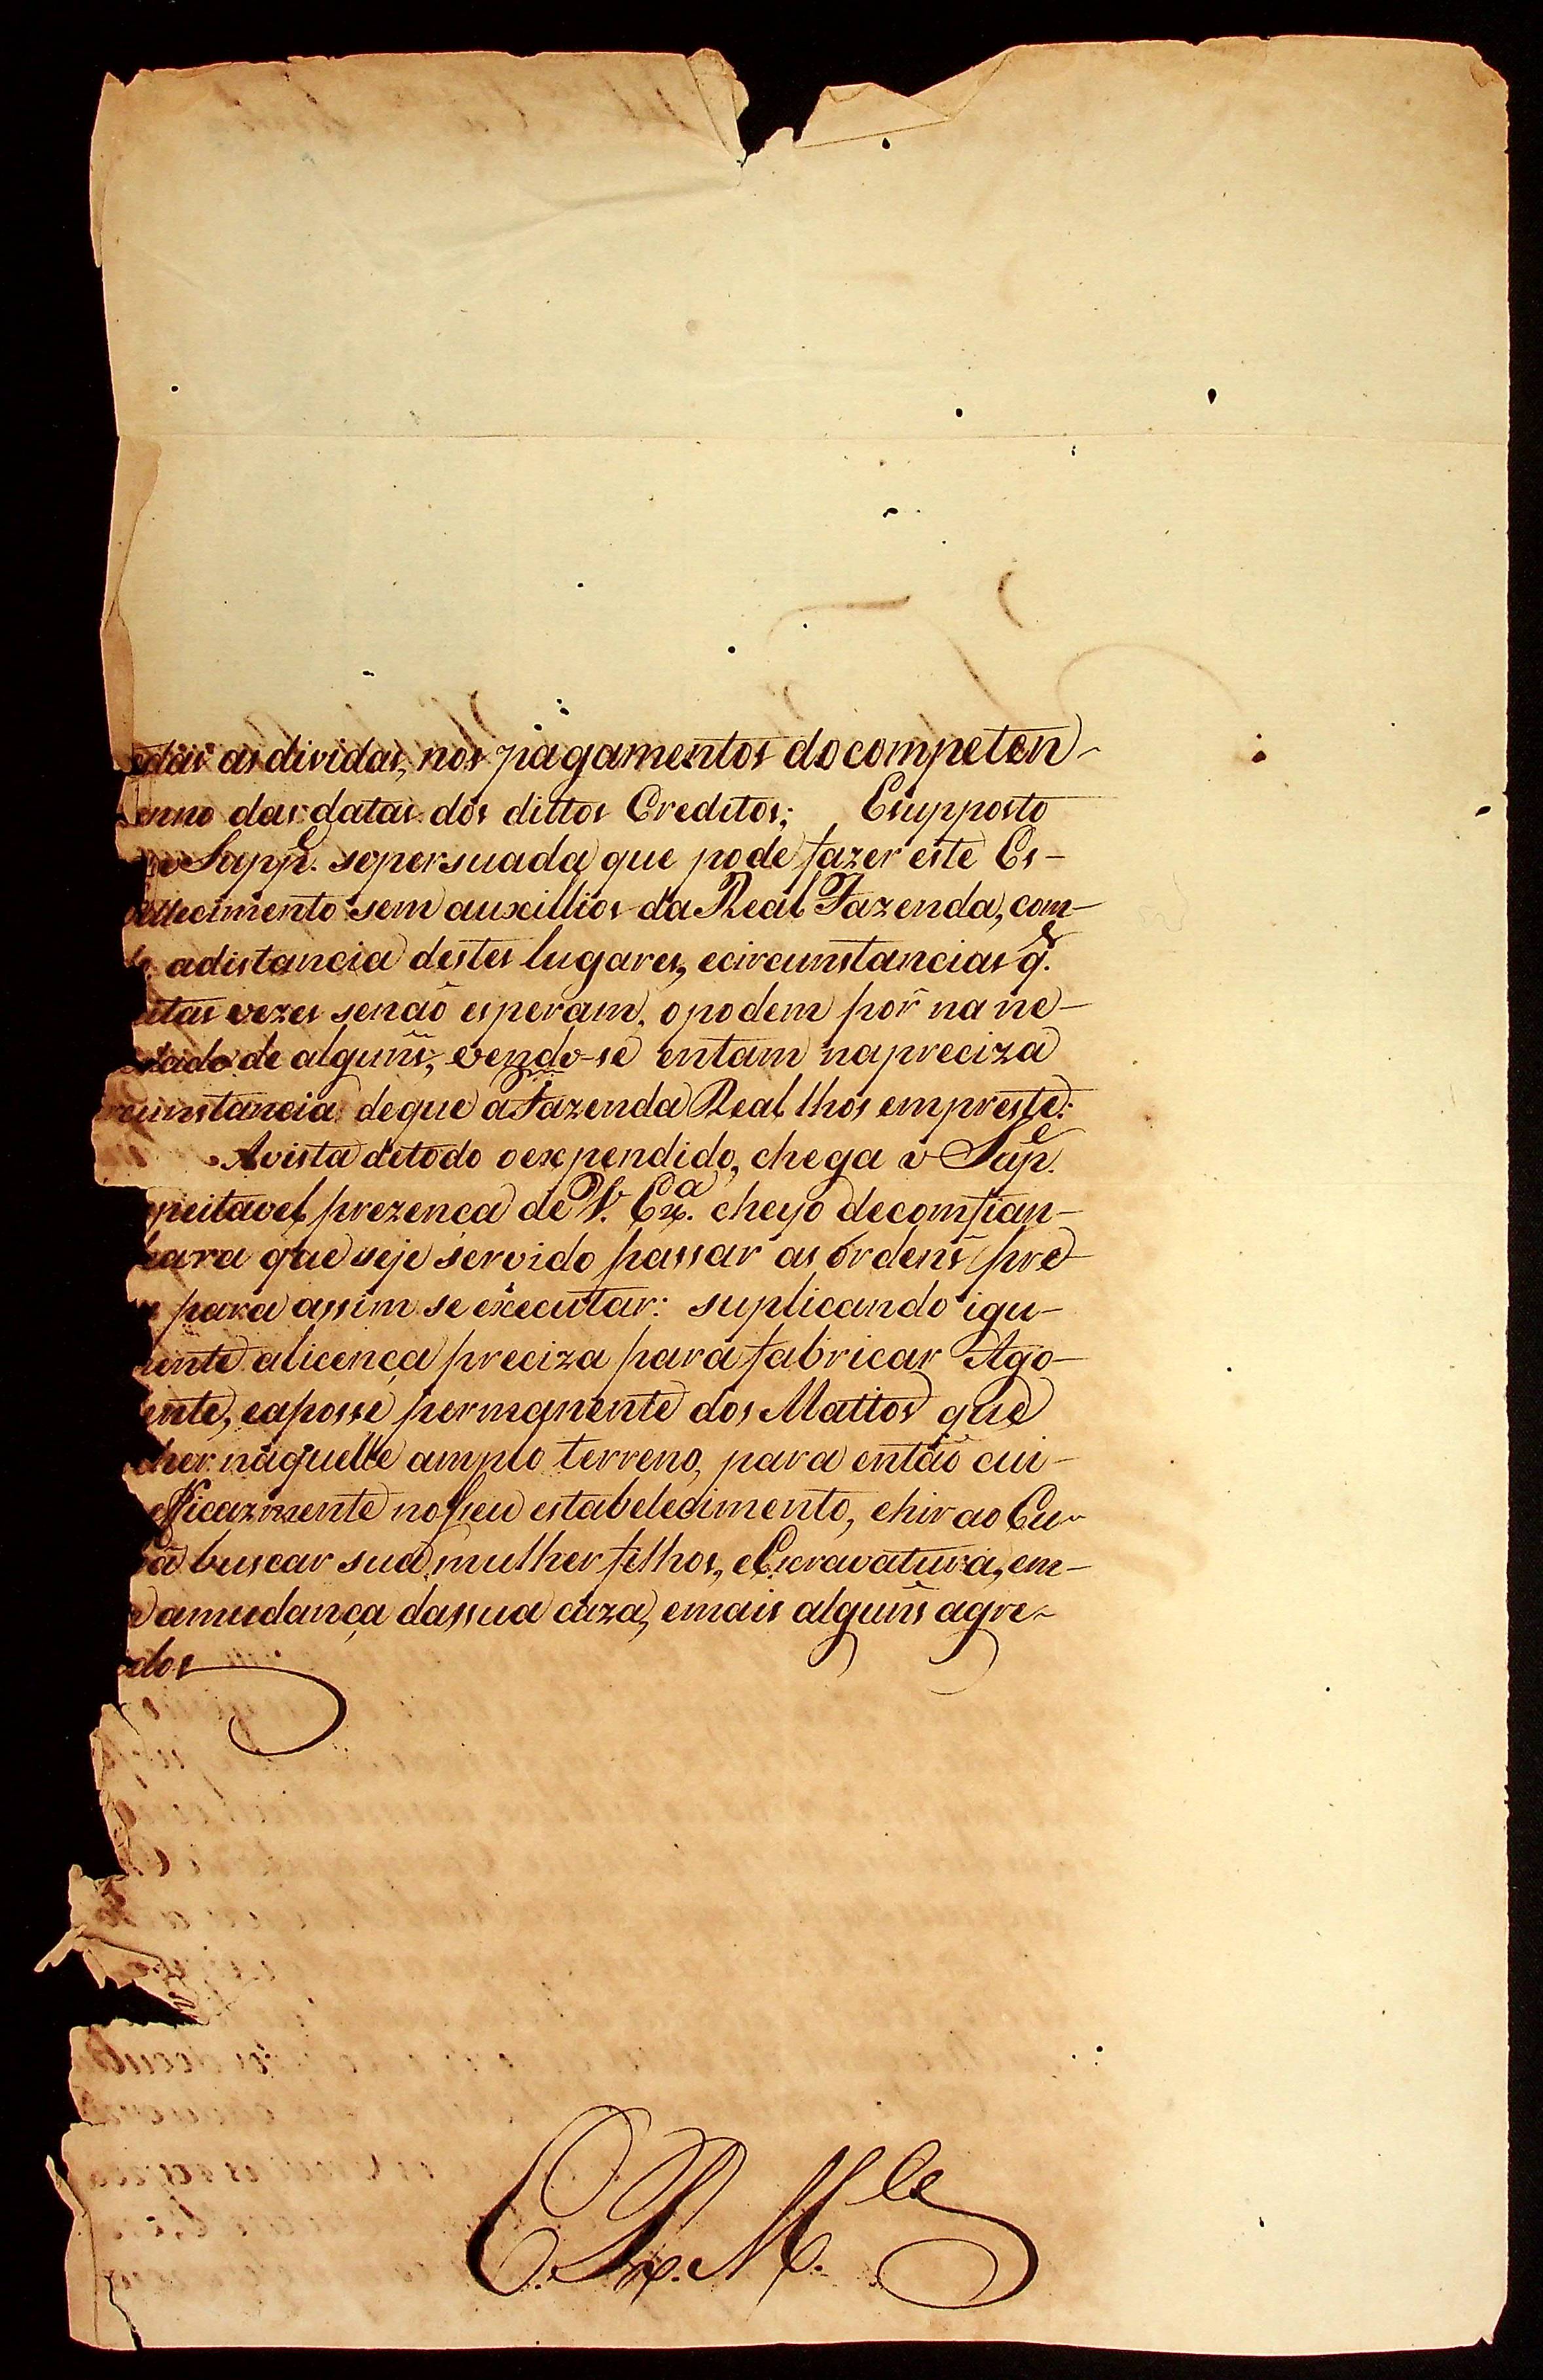 as dividas, nos pagamentos do competen-
anno das datas dos dittos Creditos; Esupposto
Supp.e sepersuada que pode fazer este Es-
bellecimento sem auxillios da Real Fazenda, com-
adistancia destes lugares, ecircunstancias q.e
itas vezes senaõ esperam, opodem pôr na ne-
cidade de alguñs, vendo-se entam napreciza
rcunstancia deque a Fazenda Real lhos empreste.
Avista detodo oexpendido, chega o Sup.e
speitavel prezenca de V. Ex.a cheyo decomfian-
para que seje servido passar as ordens pre-
para assim se executar: suplicando igu-
mente alicença preciza para fabricar Ago-
ente, eaposse permanente dos Mattos que
lher naquelle amplo terreno, para entaõ cui-
efficazmente noseu estabelecimento, ehir ao Cu-
bá buscar sua mulher filhos, eEscravatura, em-
amudança dassua caza, emais alguñs agre-
ados
E. R. M.ce